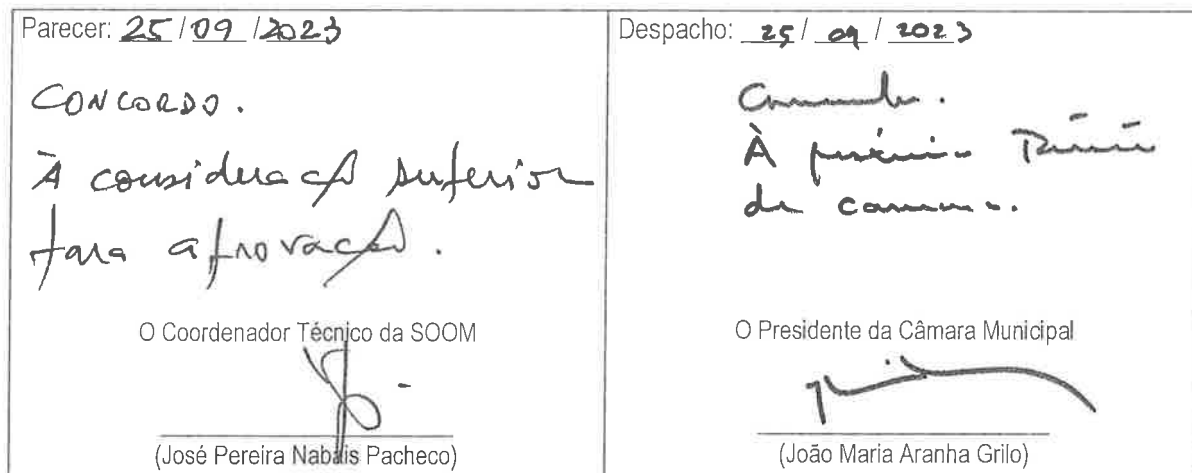 Parecer: 25 / 09 / 2023
CONCORDO.
À consideração superior
para aprovação.
O Coordenador Técnico da SOOM
(José Pereira Nabais Pacheco)
Despacho: 25 / 09 / 2023
À próxima
de
O Presidente da Câmara Municipal
(João Maria Aranha Grilo)